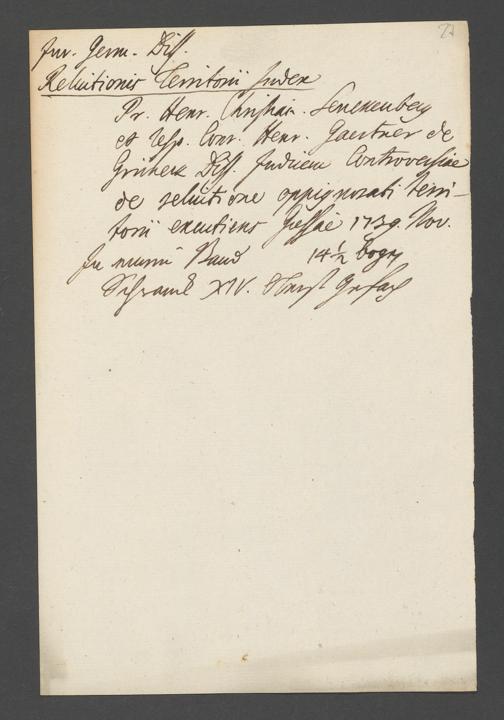 27
Jur. Germ. Diss.
Reluitionis Territorii Judex
Pr. Henr. Christian. Senckenberg
et Resp. Conr. Henr. Gaertner de
Diss. Judicem Controversiae
de reluitione oppignorati terri-
torii exutiens Gissae 1739. Nov.
In Band 14 1/2 bogen
Schranck XIV.